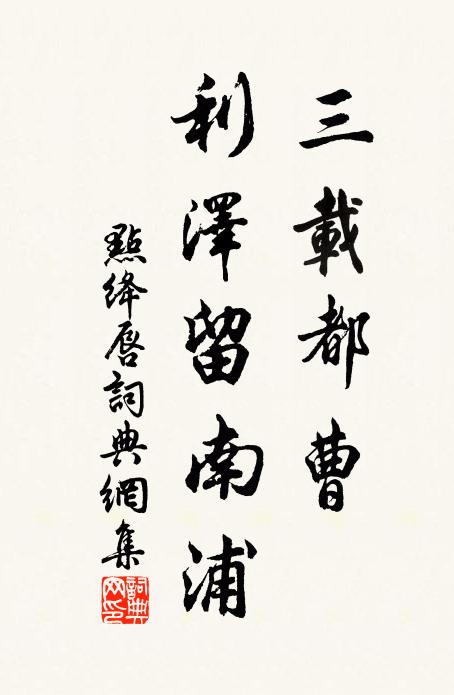 三載都曹
利澤留南浦
點絳唇詞典網集
詞典网印